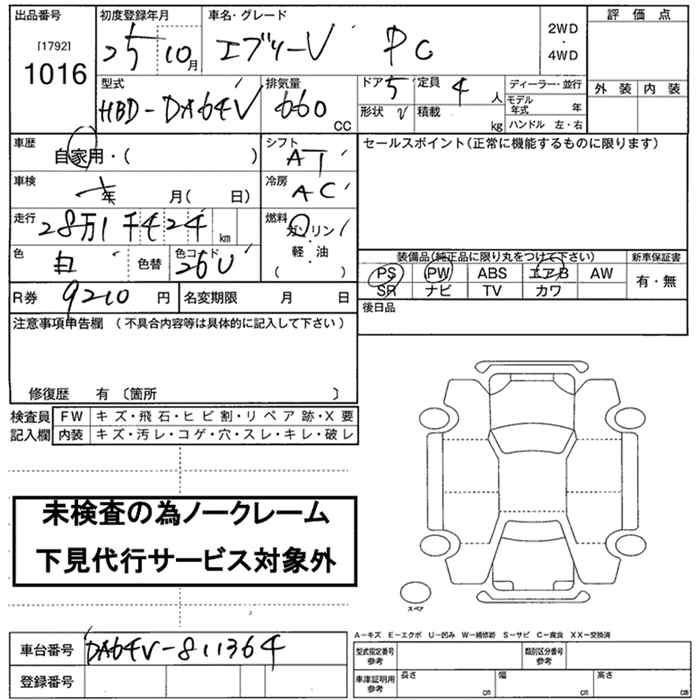 出品番号 初度登録年月 車名・グレード 評価点
[1792] 25 10月 エブリーV PC 2WD・4WD
1016
型式 排気量 ドア 5 定員 4人 ディーラー・並行 外装 内装
HBD-DA64V 660 CC 形状 V 積載 kg モデル年式 年
ハンドル 左・右
車歴 自家用・( ) シフト AT セールスポイント(正常に機能するものに限ります)
車検 年 月( 日) 冷房 AC
走行 28万1千424 km 燃料 ガソリン
色 白 色替 色コード 26U 軽・油
( ) 装備品(純正品に限り丸をつけて下さい) 新車保証書
PS PW ABS エアB AW 有・無
SR ナビ TV カワ
R券 9210円 名変期限 月 日 後日品
注意事項申告欄 (不具合内容等は具体的に記入して下さい)
修復歴 有 〔箇所 〕
検査員 FW キズ・飛石・ヒビ割・リペア跡・X要
記入欄 内装 キズ・汚レ・コゲ・穴・スレ・キレ・破レ
未検査の為ノークレーム
下見代行サービス対象外
スペア
A-キズ E-エクボ U-凹み W-補修跡 S-サビ C-腐食 XX-交換済
車台番号 DA64V-811364 型式指定番号 参考 類別区分番号 参考
登録番号 車庫証明用 参考 長さ cm 幅 cm 高さ cm